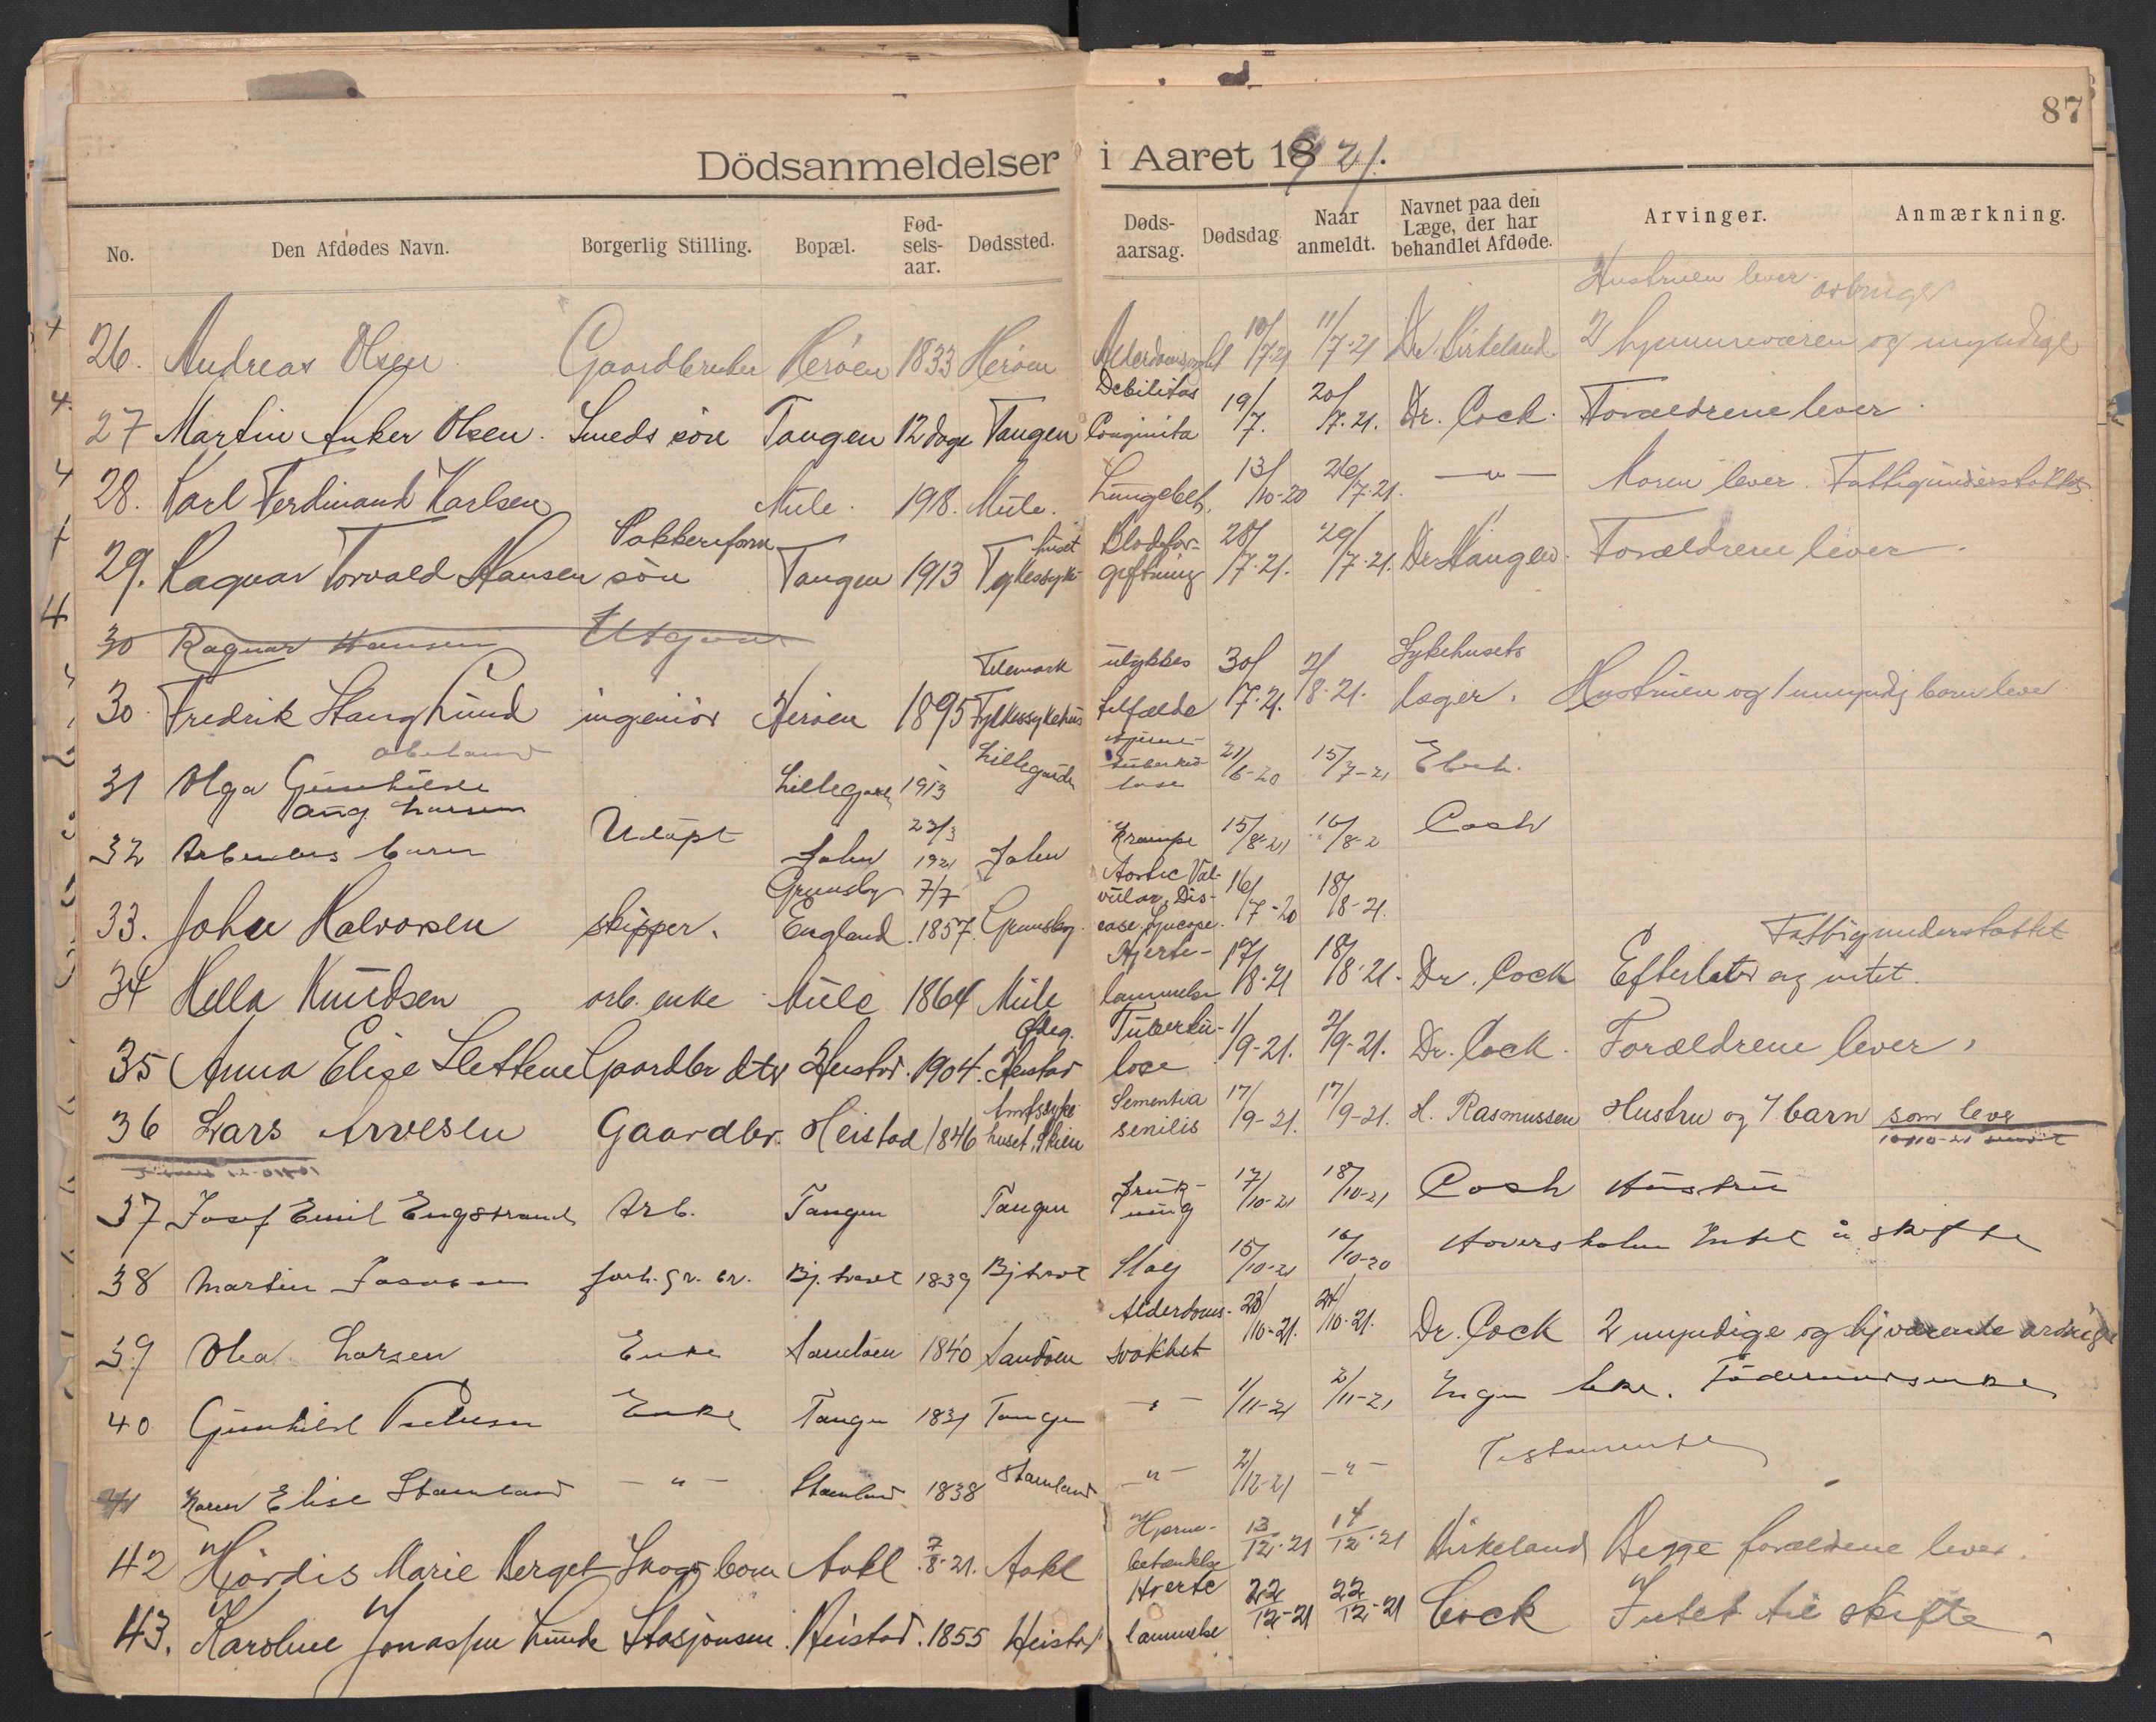 87
Dödsanmeldelser i Aaret 1921.
No. Den Afdødes Navn. Borgerlig Stilling. Bopæl. Fød-sels-aar. Dødssted. Døds-aarsag. Dødsdag. Naar anmeldt. Navnet paa den Læge, der har behandlet Afdøde. Arvinger. Anmærkning.
Hustruen lever
26. Andreas Olsen Gaardbruker Herøen 1833 Herøen 10/7-21 11/7-21 Dr. Birkeland 2 og myndige
27 Martin Anker Olsen. Smeds søn Tangen 12 dage Tangen Debilitas Conginita 19/7. 20/7.21. Dr. Cock. Forældrene lever.
28. Karl Ferdinand Karlsen Mule. 1918. Mule. Lungebet. 13/10-20 26/7.21. -"- Moren lever. Fattigunderstøttet
29. Ragnar Torvald Hansen søn Tangen 1913 Blodfor-giftning 28/7.21. 29/7.21. Forældrene lever.
30 Ragnar Hansen Utgaar
30. Fredrik Stang Lund ingeniør Herøen 1895 Telemark Fylkessykehus ulykkes tilfælde 30/7.21. 2/8.21. Sykehusets læger. Hustruen og 1 umyndig barn lever
31 Olga Gunhilde Lillegaard 1913 Lillegaarden 21/6-20 15/7-21
32 Aug Larsen Arbeiders barn Udøpt 23/3 1921 Krampe 15/8-21 16/8-2 Cock
33. John Halvorsen skipper. Grimsby England. 7/7 1857. Grimsby. Aortic Val-vular Dis-ease, Syncope. 16/7-20 18/8-21.
Fattigunderstøttet
34 Hella Knudsen arb. enke Mule 1864 Mule Hjerte-lammelse 17/8.21 18/8.21. Dr. Cock Efterlater sig intet.
35 Anna Elise Slettene Gaardbr dtr Heistad. 1904. Heistad Tuberku-lose 1/9-21. 2/9-21. Dr. Cock. Forældrene lever.
36 Lars Arvesen Gaardbr. Heistad 1846 Amtssyke-huset, Skien Dementia senilis 17/9-21. 17/9-21. H. Rasmussen Hustru og 7 barn som lever
37 Josef Emil Engstrand Arb. Tangen Tangen Druk-ning 17/10-21 18/10-21 Cock Hustru
38 Martin forh. gr. br. 1839 Slag 15/10-21 16/10-20 Intet å skifte
39 Olea Larsen Enke Sandøen 1840 Sandøen Alderdoms-svakhet 23/10-21. 24/10-21. Dr. Cock 2 myndige og hjværende arvinger
40 Gunhild Enke Tangen 1831 Tangen -"- 1/11-21 2/11-21 Ingen
41 Karen Elise Stamland -"- Stamland 1838 Stamland -"- 2/12-21 -"- Testamente
42 Hjördis Marie Berget Skogs barn 7/8-21. Hjerne-betændelse 13/12-21 14/12-21 Birkeland Begge forældrene lever.
43. Karoline Jonassen Lunde Heistad. 1855 Heistad Hjerte lammelse 22/12-21 22/12-21 Cock Intet til skifte